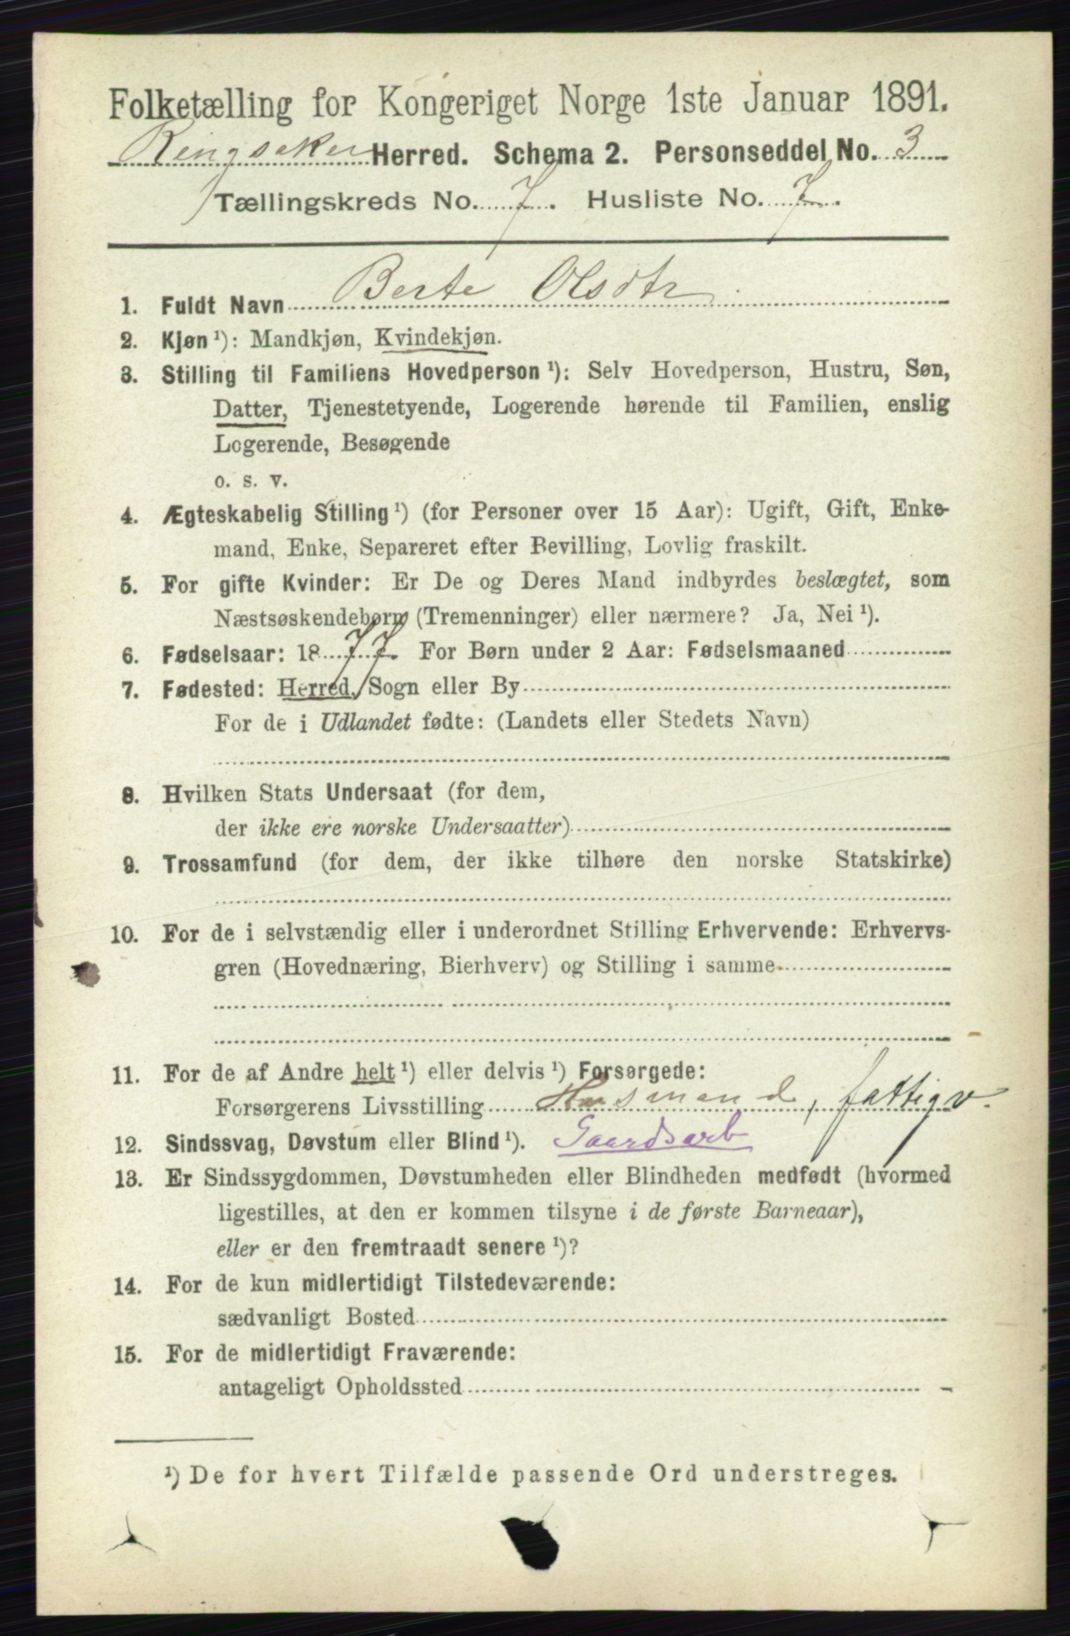 Folketælling for Kongeriget Norge 1ste Januar 1891.
Ringsaker Herred. Schema 2. Personseddel No. 3
Tællingskreds No. 7. Husliste No. 7.
1. Fuldt Navn Berte Olsdtr
2. Kjøn ¹): Mandkjøn, Kvindekjøn.
3. Stilling til Familiens Hovedperson ¹): Selv Hovedperson, Hustru, Søn,
Datter, Tjenestetyende, Logerende hørende til Familien, enslig
Logerende, Besøgende
o. s. v.
4. Ægteskabelig Stilling ¹) (for Personer over 15 Aar): Ugift, Gift, Enke-
mand, Enke, Separeret efter Bevilling, Lovlig fraskilt.
5. For gifte Kvinder: Er De og Deres Mand indbyrdes beslægtet, som
Næstsøskendebørn (Tremenninger) eller nærmere? Ja, Nei ¹).
6. Fødselsaar: 1877. For Børn under 2 Aar: Fødselsmaaned
7. Fødested: Herred, Sogn eller By
For de i Udlandet fødte: (Landets eller Stedets Navn)
8. Hvilken Stats Undersaat (for dem,
der ikke ere norske Undersaatter)
9. Trossamfund (for dem, der ikke tilhøre den norske Statskirke)
10. For de i selvstændig eller i underordnet Stilling Erhvervende: Erhvervs-
gren (Hovednæring, Bierhverv) og Stilling i samme
11. For de af Andre helt ¹) eller delvis ¹) Forsørgede:
Forsørgerens Livsstilling Husmand, fattigv.
12. Sindssvag, Døvstum eller Blind ¹). Gaardsarb
13. Er Sindssygdommen, Døvstumheden eller Blindheden medfødt (hvormed
ligestilles, at den er kommen tilsyne i de første Barneaar),
eller er den fremtraadt senere ¹)?
14. For de kun midlertidigt Tilstedeværende:
sædvanligt Bosted
15. For de midlertidigt Fraværende:
antageligt Opholdssted
¹) De for hvert Tilfælde passende Ord understreges.